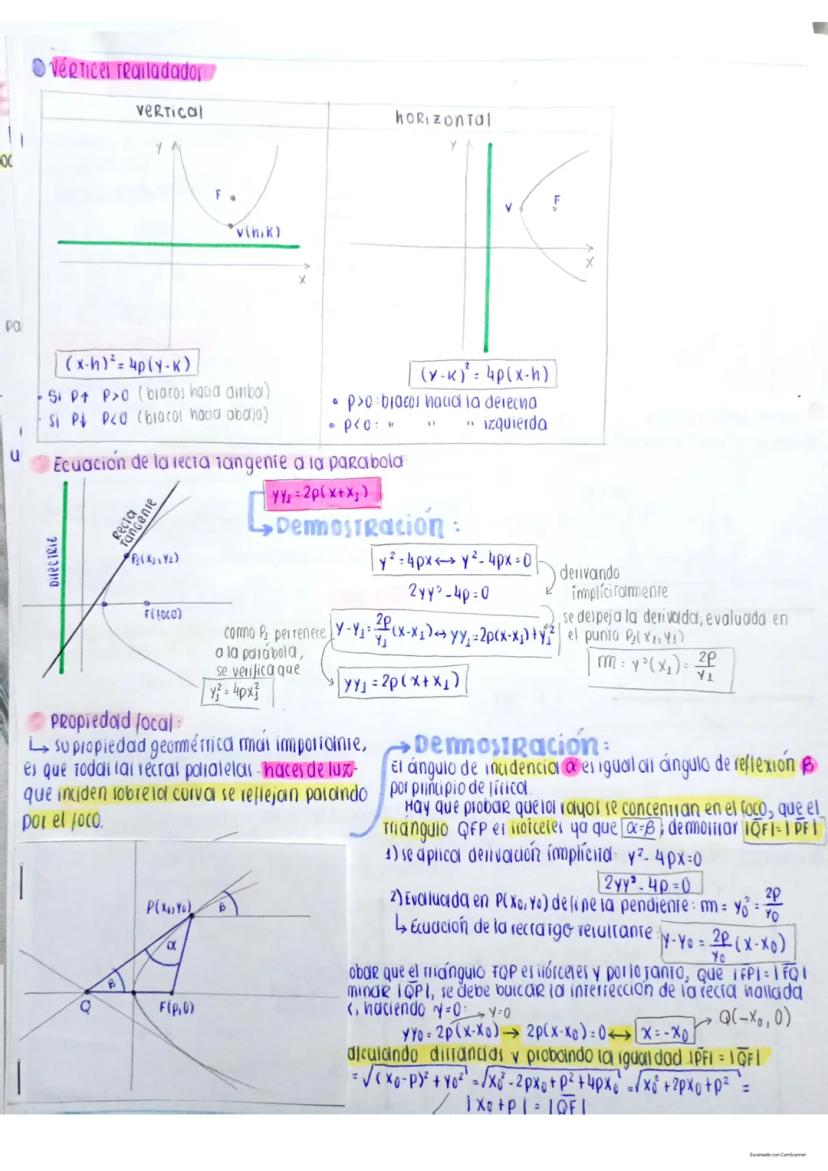 Vértices trasladados:
vertical
horizontal
y
F
V(h,k)
x
y
V
F
x
(x-h)² = 4p(y-k)
- Si p↑ p>0 (brazos hacia arriba)
- Si p↓ p<0 (brazos hacia abajo)
(y-k)² = 4p(x-h)
• p>0: brazos hacia la derecha
• p<0: " " " izquierda
Ecuación de la recta tangente a la parabola
yy₁ = 2p(x+x₁)
Demostración:
Directriz
Recta tangente
P₁(x₁,y₁)
F(foco)
y² = 4px ↔ y² - 4px = 0
2yy' - 4p = 0
derivando
implícitamente
y-y₁ = 2p/y₁ (x-x₁) ↔ yy₁ = 2p(x-x₁) + y₁²
se despeja la derivada, evaluada en
el punto P₁(x₁,y₁)
m = y'(x₁) = 2p/y₁
como P₁ pertenece
a la parábola,
se verifica que
y₁² = 4px₁²
yy₁ = 2p(x+x₁)
Propiedad focal:
↳ su propiedad geométrica más importante,
es que todas las rectas paralelas - haces de luz -
que inciden sobre la curva se reflejan pasando
por el foco.
Demostración:
El ángulo de incidencia α es igual al ángulo de reflexión β
por principio de física.
Hay que probar que los rayos se concentran en el foco, que el
triángulo QFP es isósceles ya que α=β, demostrar |QF| = |PF|
1) se aplica derivación implícita: y² - 4px = 0
2yy' - 4p = 0
2) Evaluada en P(x₀,y₀) define la pendiente: m = y₀' = 2p/y₀
↳ Ecuación de la recta rgo resultante: y-y₀ = 2p/y₀ (x-x₀)
P(x₀,y₀)
β
α
β
Q
F(p,0)
obar que el triángulo FQP es isósceles y por lo tanto, que |FP| = |FQ|
minar |QP|, se debe buscar la intersección de la recta hallada
x, haciendo y=0:
y=0
Q(-x₀, 0)
yy₀ = 2p(x-x₀) → 2p(x-x₀) = 0 ↔ x = -x₀
alculando distancias y probando la igualdad |PF| = |QF|
= √(x₀-p)² + y₀² = √x₀² - 2px₀ + p² + 4px₀ = √x₀² + 2px₀ + p² =
|x₀+p| = |QF|
Escaneado con CamScanner